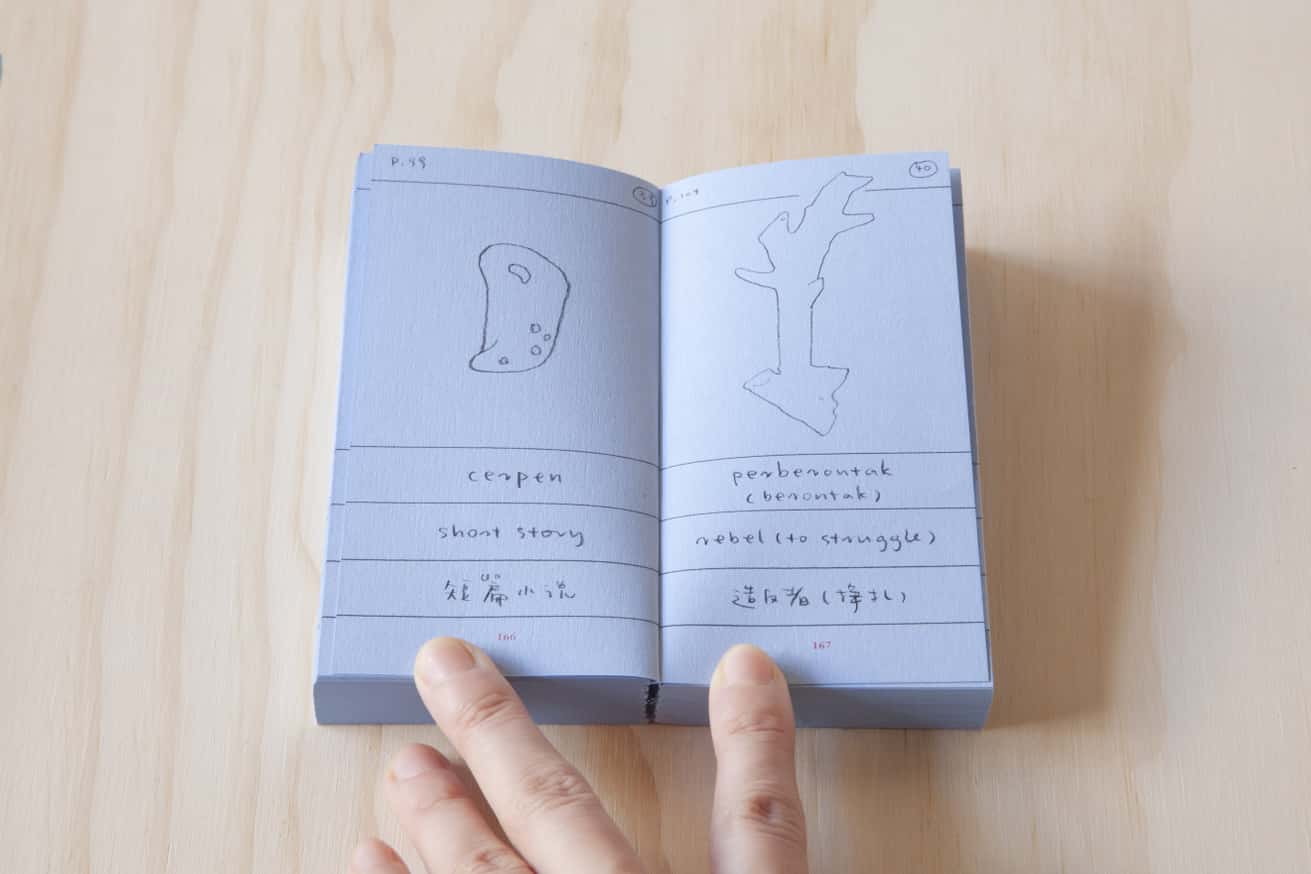 P.99
39
cerpen
short story
短篇小说
166
P.109
40
perberontak
(berontak)
rebel (to struggle)
造反者(挣扎)
167